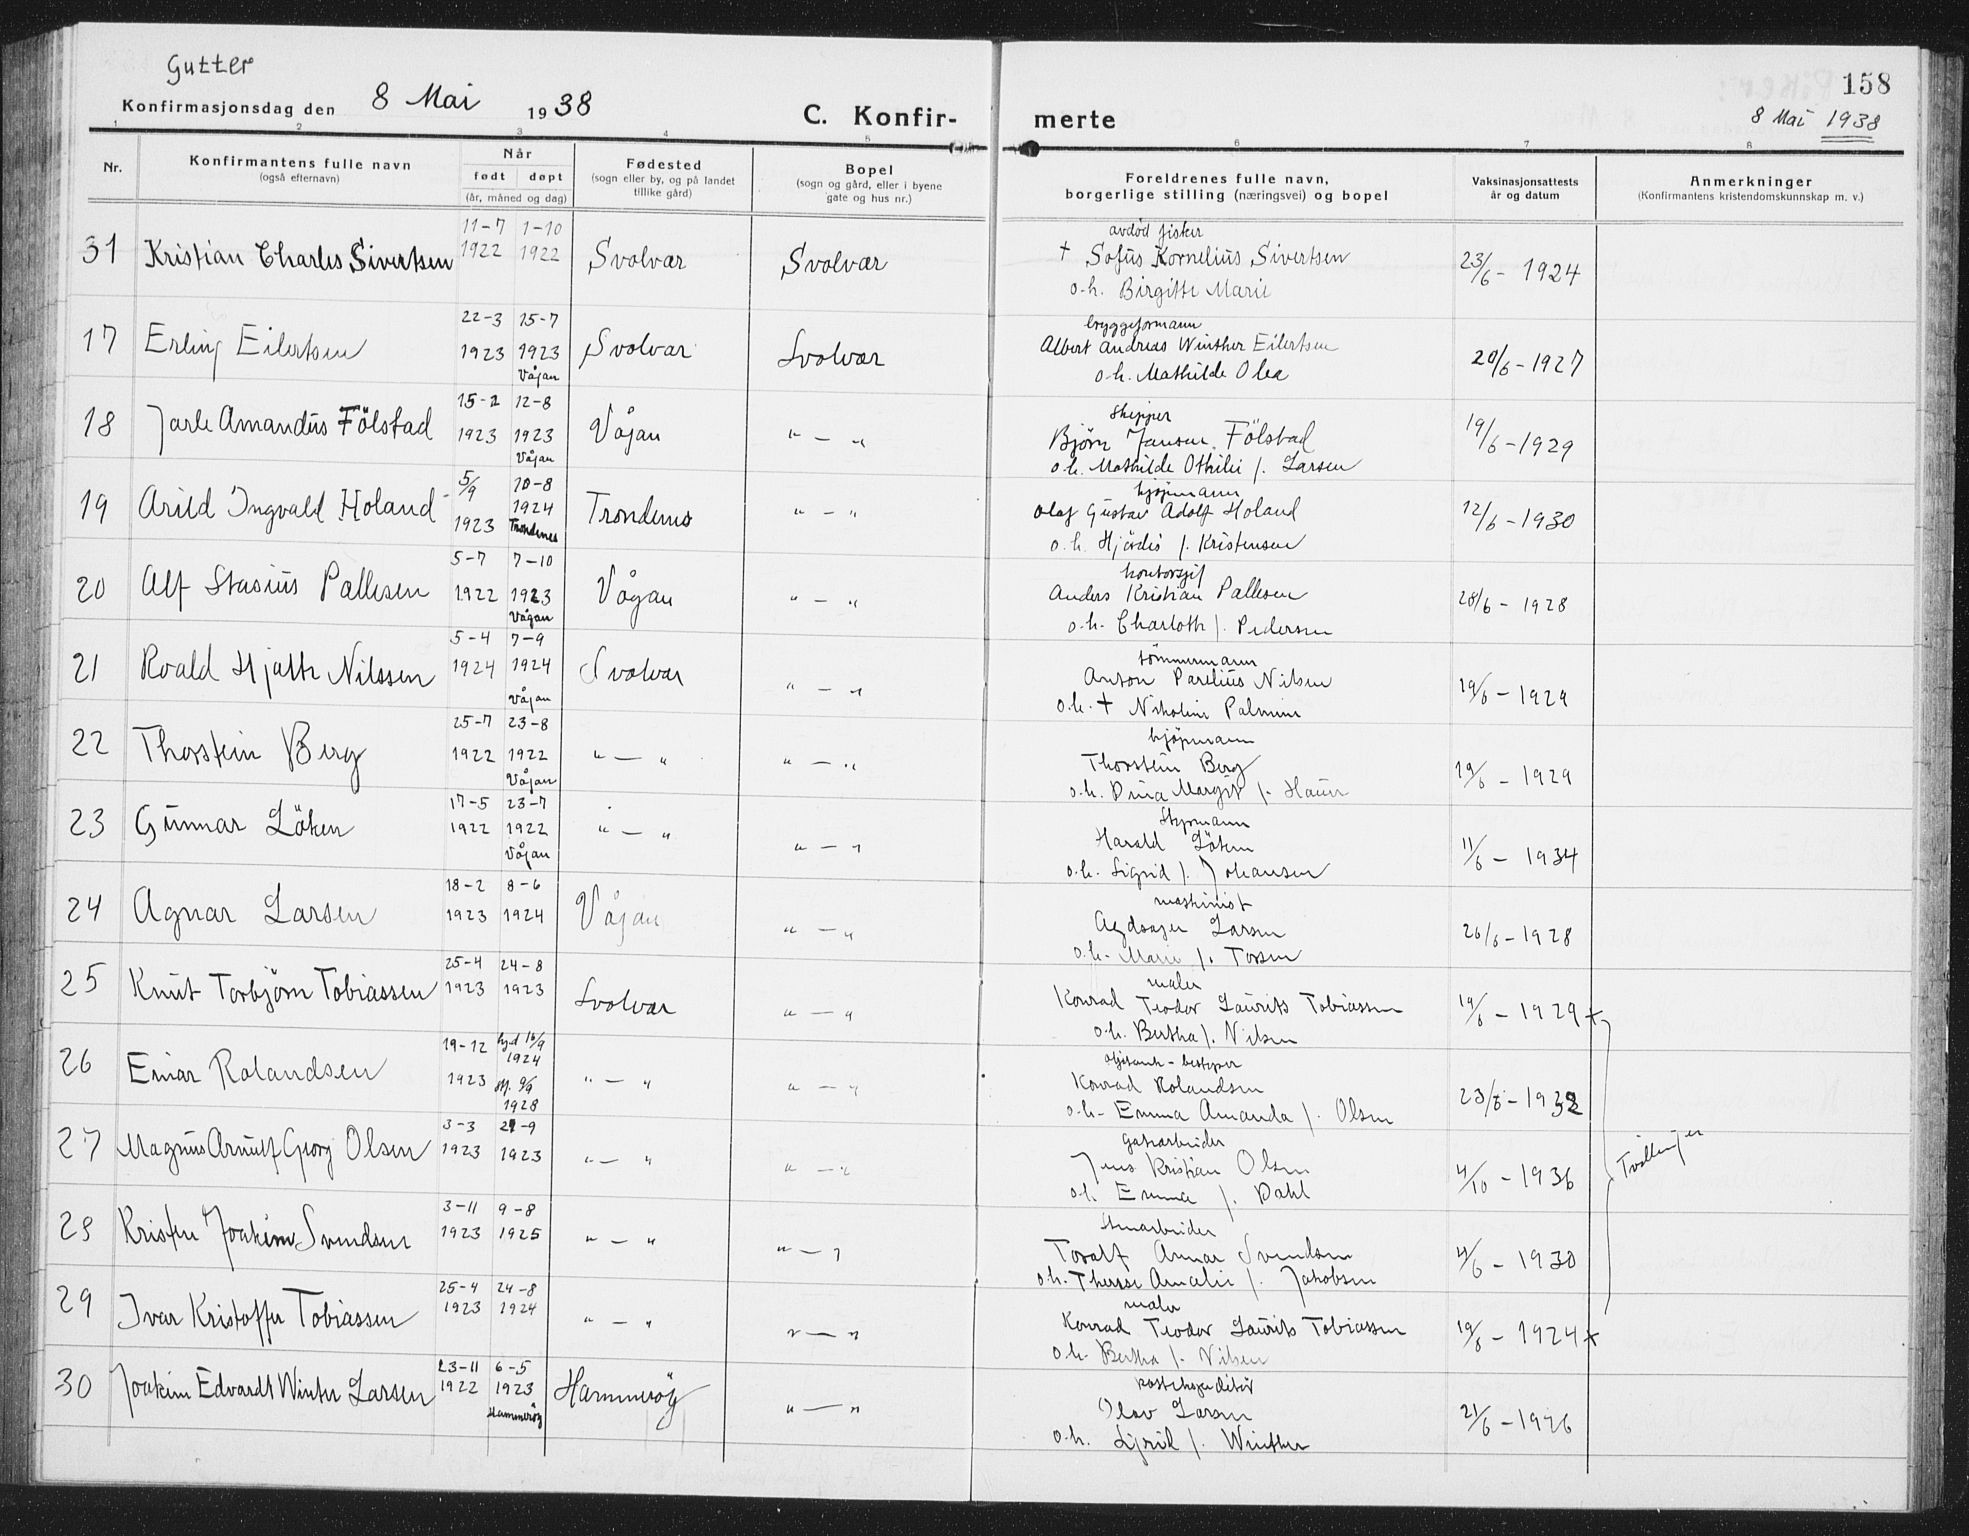 Gutter
Konfirmasjonsdag den 8 Mai 1938
C. Konfir-
merte
158
8 Mai 1938
1 2 3 4 5 6 7 8
Nr.
Konfirmantens fulle navn
(også efternavn)
Når
født døpt
(år, måned og dag)
Fødested
(sogn eller by, og på landet
tillike gård)
Bopel
(sogn og gård, eller i byene
gate og hus nr.)
Foreldrenes fulle navn,
borgerlige stilling (næringsvei) og bopel
Vaksinasjonsattests
år og datum
Anmerkninger
(Konfirmantens kristendomskunnskap m. v.)
11-7 1-10 avdød fisker
31 Kristian Charles Sivertsen 1922 1922 Svolvær Svolvær † Sofus Kornelius Sivertsen 23/6 - 1924
o.h. Birgitte Marie
22-3 15-7 bryggeformann
17 Erling Eilertsen 1923 1923 Svolvær Svolvær Albert Andreas Winther Eilertsen 20/6 - 1927
Vågan o.h. Mathilde Olea
15-2 12-8 skipper
18 Jarle Amandus Fölstad 1923 1923 Vågan " - " Björn Jansen Fölstad 19/6 - 1929
Vågan o.h. Mathilde Othilie f. Larsen
5/9 10-8 kjøpmann
19 Arild Ingvald Holand 1923 1924 Trondenes " - " Olaf Gustav Adolf Holand 12/6 - 1930
Trondenes o.h. Hjördis f. Kristensen
5-7 7-10
20 Alf Stasius Pallesen 1922 1923 Vågan " - " Anders Kristian Pallesen 28/6 - 1928
Vågan o.h. Charloth f. Pedersen
5-4 7-9 tömmermann
21 Roald Hjalth Nilssen 1924 1924 Svolvær " - " Anton Parelius Nilsen 19/6 - 1929
Vågan o.h. † Nikoline Palmine
25-7 23-8 kjöpmann
22 Thorstein Berg 1922 1922 " - " " - " Thorstein Berg 19/6 - 1929
Vågan o.h. Dina Margit f.
17-5 23-7 Styrmann
23 Gunnar Löken 1922 1922 " - " " - " Harald Löken 11/6 - 1934
Vågan o.h. Sigrid f. Johansen
18-2 8-6 maskinist
24 Agnar Larsen 1923 1924 Vågan " - " Larsen 26/6 - 1928
o.h. Marie f.
25-4 24-8 maler
25 Knut Torbjörn Tobiassen 1923 1923 Svolvær " - " Konrad Teodor Laurits Tobiassen 19/6 - 1929 +
o.h. Bertha f. Nilsen
19-12 hj.d 16/9 1924
26 Einar Rolandsen 1923 1928 " - " " - " Konrad Rolandsen 23/6 - 1932
o.h. Emma Amanda f. Olsen
3-3 21-9 Gatearbeider
27 Magnus Arnulf Georg Olsen 1923 1923 " - " " - " Jens Kristian Olsen 4/10 - 1936
o.h. Emma f. Dahl
Tvillinger
3-11 9-8
28 Kristen Joakim Svendsen 1923 1925 " - " " - " Toralf Annar Svendsen 4/6 - 1930
o.h. Therese Amalie f. Jakobsen
25-4 24-8 maler
29 Ivar Kristoffer Tobiassen 1923 1924 " - " " - " Konrad Teodor Laurits Tobiassen 19/6 - 1924 +
o.h. Bertha f. Nilsen
23-11 6-5 postekspeditör
30 Joakim Edvardt Winter Larsen 1922 1923 Hammeröy " - " Olav Larsen 21/6 - 1926
Hammeröy o.h. f. Winther